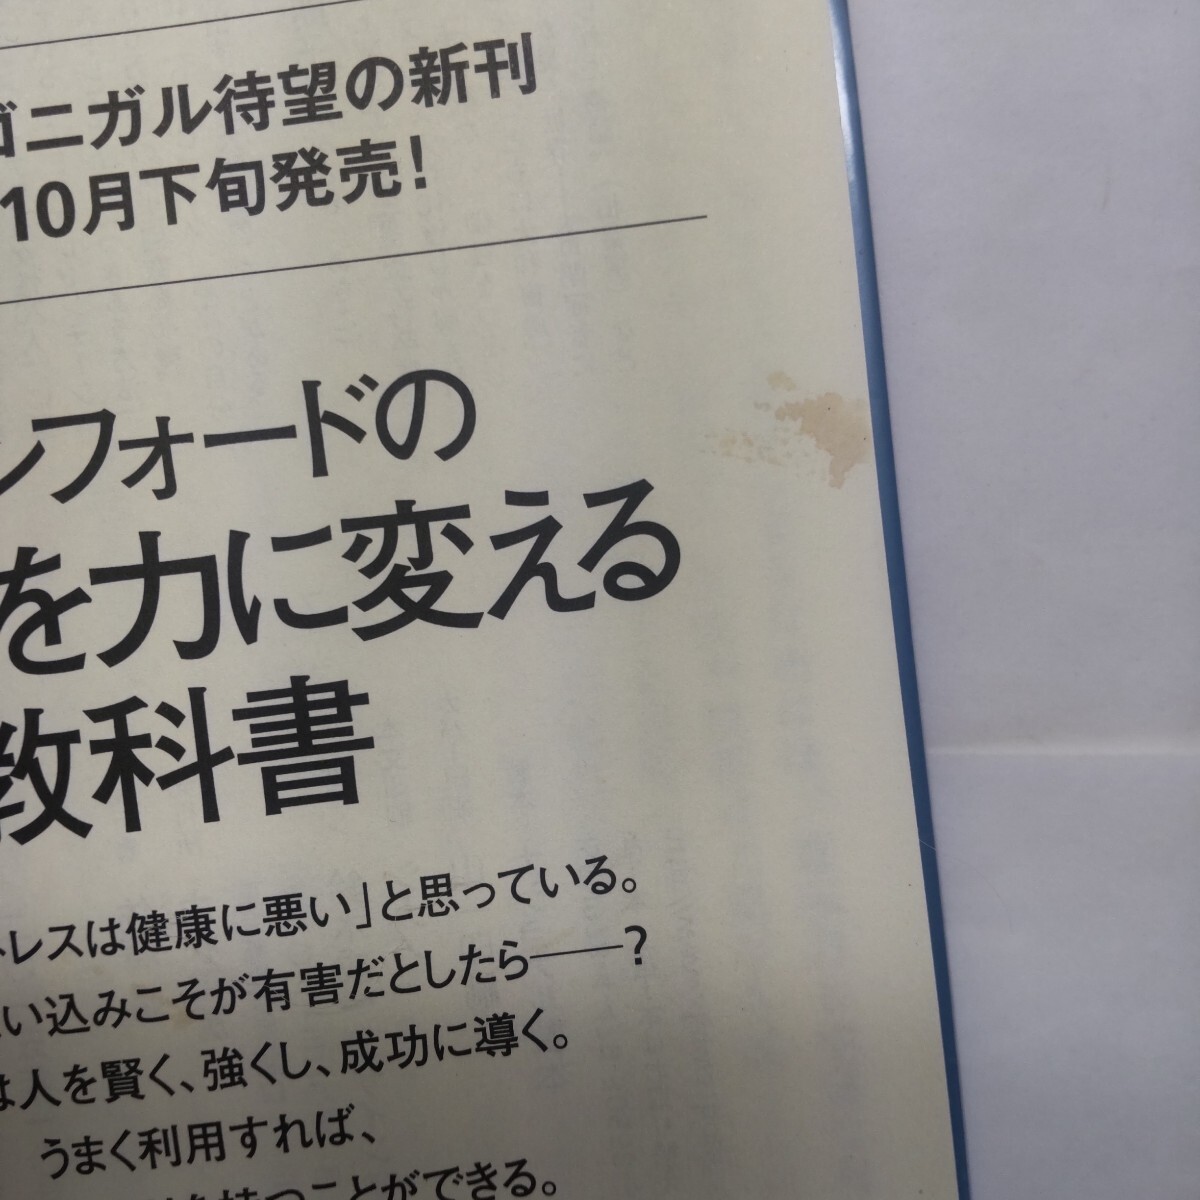 ゴニガル待望の新刊
10月下旬発売！
ンフォードの
を力に変える
教科書
トレスは健康に悪い」と思っている。
い込みこそが有害だとしたら――？
は人を賢く、強くし、成功に導く。
うまく利用すれば、
を持つことができる。